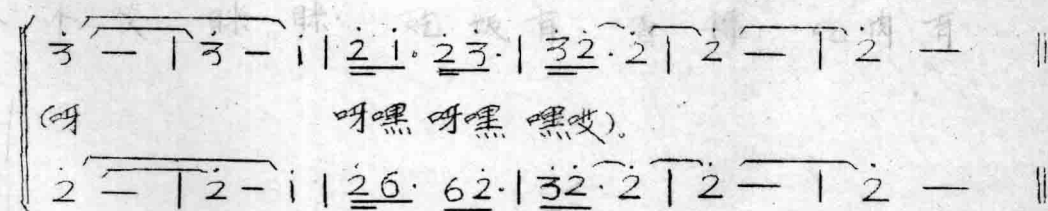 3̇ — | 3̇ — i̇ | 2̇ i̇. 2̇ 3̇. | 3̇2̇. 2̇ | 2̇ — | 2̇ — ‖
(呀 呀嘿 呀嘿 嘿哎)。
2̇ — | 2̇ — i̇ | 2̇ 6. 6 2̇. | 3̇2̇. 2̇ | 2̇ — | 2̇ — ‖